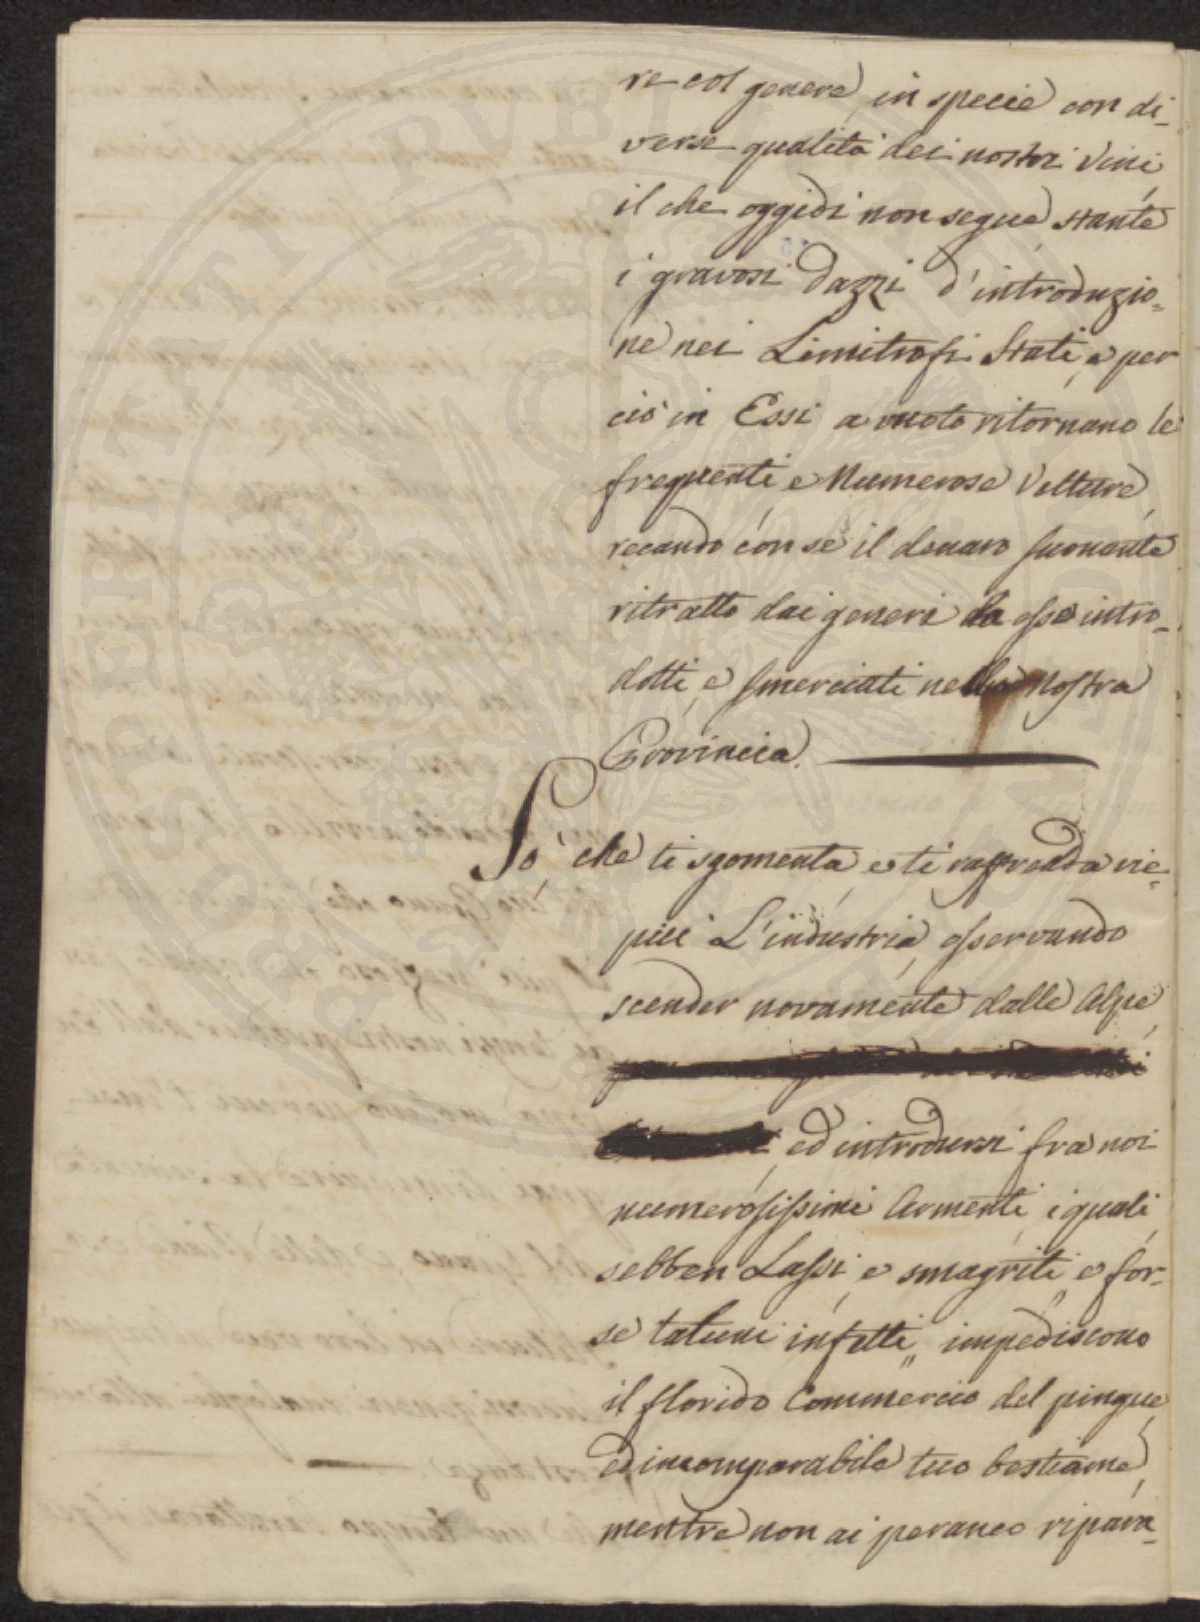 re col genere, in specie con di-
verse qualità dei nostri Vini
il che oggidi non segue, stante
i gravosi dazzi d'introduzio=
ne nei Limitrofi Stati, e per
ciò in Essi a vuoto ritornano le
frequenti e Numerose Vetture,
recando con se il denaro suonante
ritratto dai generi da esse intro=
dotti, e smerciati nella nostra
Provincia.
So, che ti sgomenta, e ti raffredda vie=
più L'industria, osservando
scender novamente dalle Alpe,
ed introdursi fra noi
numerosissimi Armenti, i quali,
sebben Lassi, e smagriti, e for=
se taluni infetti, impediscono
il florido Commercio del pingue,
ed incomparabile tuo bestiame,
mentre non ai peranco ripara=
PROSPERITATI PVBLICAE